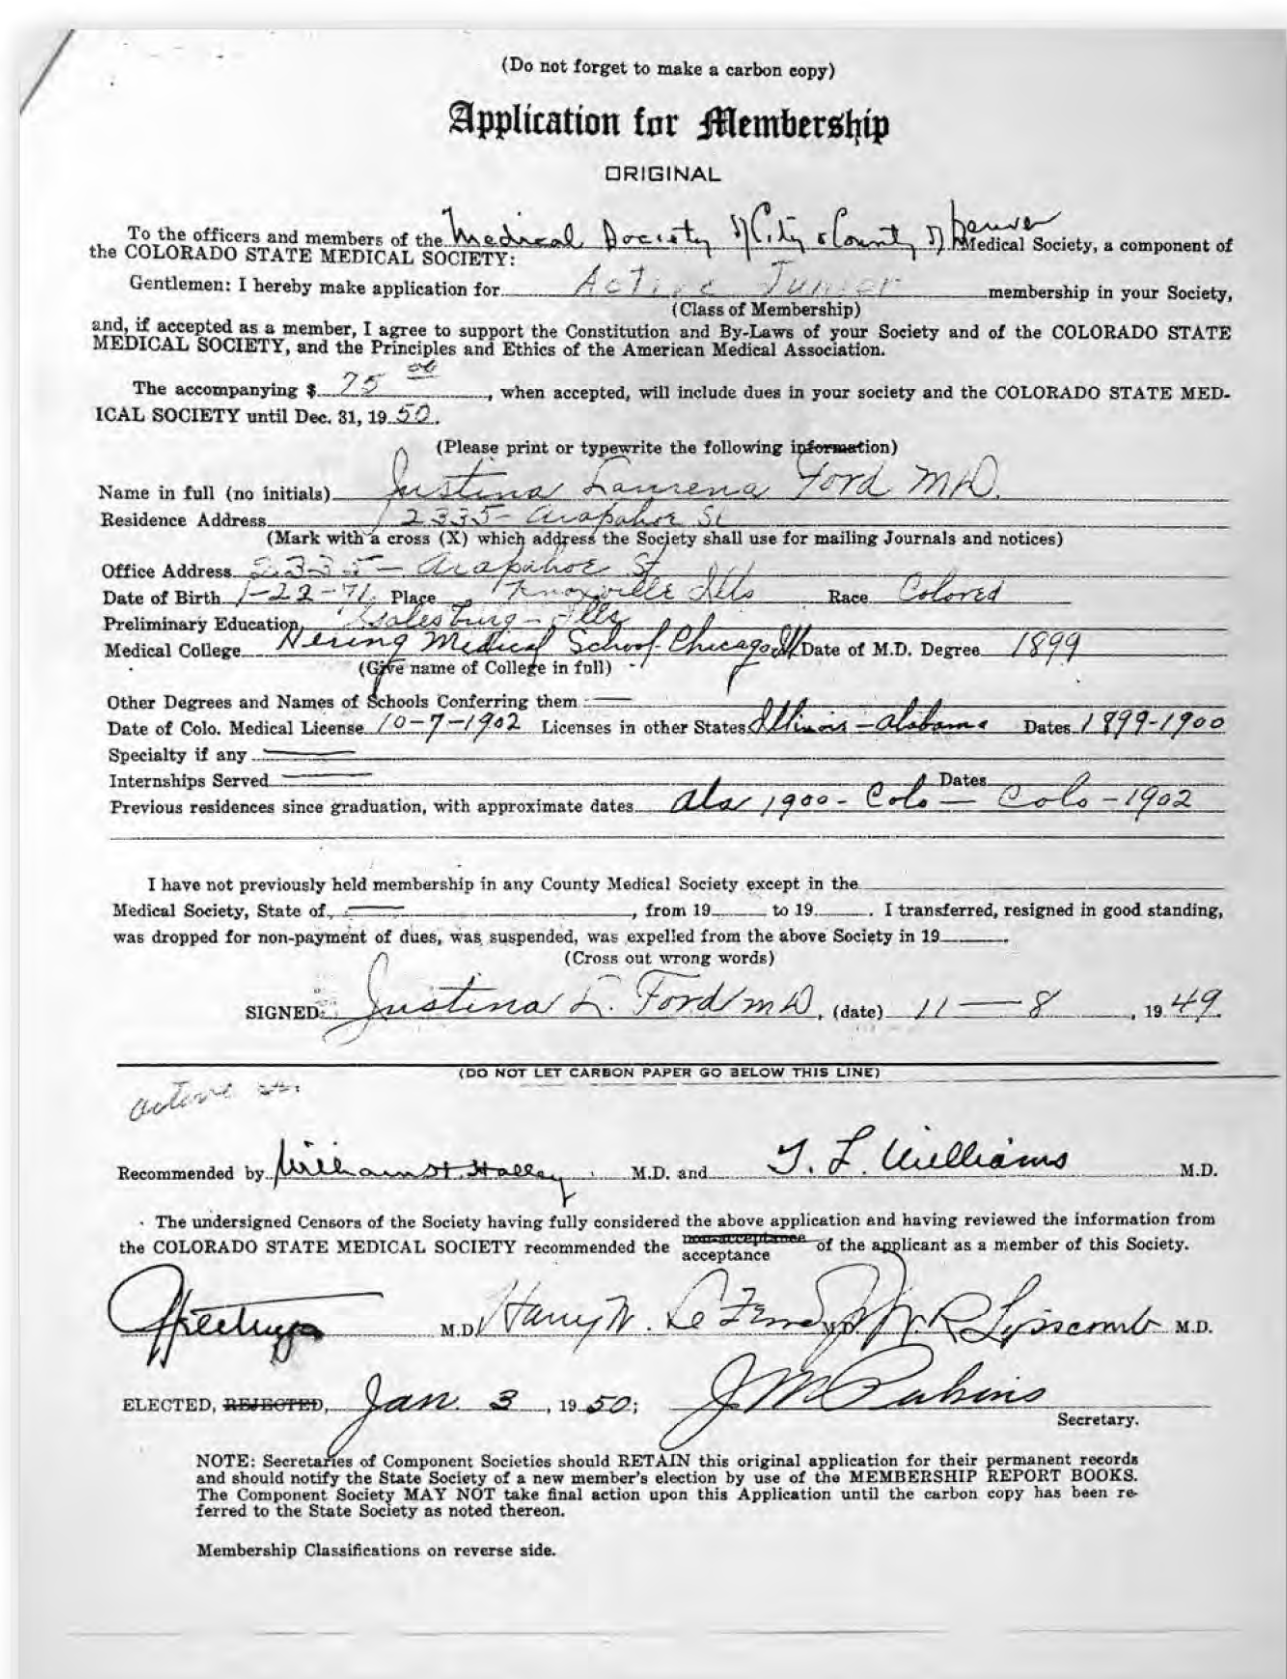 (Do not forget to make a carbon copy)
Application for Membership
ORIGINAL
To the officers and members of the Medical Society of City & County of Denver Medical Society, a component of
the COLORADO STATE MEDICAL SOCIETY:
Gentlemen: I hereby make application for Active Junior membership in your Society,
(Class of Membership)
and, if accepted as a member, I agree to support the Constitution and By-Laws of your Society and of the COLORADO STATE
MEDICAL SOCIETY, and the Principles and Ethics of the American Medical Association.
The accompanying $ 75 00, when accepted, will include dues in your society and the COLORADO STATE MED-
ICAL SOCIETY until Dec. 31, 19 50.
(Please print or typewrite the following information)
Name in full (no initials) Justina Laurena Ford M.D.
Residence Address 2335- Arapahoe St
(Mark with a cross (X) which address the Society shall use for mailing Journals and notices)
Office Address 2335- Arapahoe St
Date of Birth 1-22-71 Place Knoxville Ills Race Colored
Preliminary Education Galesburg - Ills
Medical College Hering Medical School - Chicago Ill Date of M.D. Degree 1899
(Give name of College in full)
Other Degrees and Names of Schools Conferring them
Date of Colo. Medical License 10-7-1902 Licenses in other States Illinois - Alabama Dates 1899-1900
Specialty if any
Internships Served Dates
Previous residences since graduation, with approximate dates Ala 1900 - Colo - Colo - 1902
I have not previously held membership in any County Medical Society except in the
Medical Society, State of, , from 19 to 19 . I transferred, resigned in good standing,
was dropped for non-payment of dues, was suspended, was expelled from the above Society in 19 .
(Cross out wrong words)
SIGNED: Justina L. Ford M.D., (date) 11 — 8, 19 49.
(DO NOT LET CARBON PAPER GO BELOW THIS LINE)
active
Recommended by William H. Halley M.D. and T. L. Williams M.D.
The undersigned Censors of the Society having fully considered the above application and having reviewed the information from
the COLORADO STATE MEDICAL SOCIETY recommended the non-acceptance acceptance of the applicant as a member of this Society.
M.D. Harry W. M.D. W. R. Lipscomb M.D.
ELECTED, REJECTED, Jan. 3, 19 50; J M Perkins
Secretary.
NOTE: Secretaries of Component Societies should RETAIN this original application for their permanent records
and should notify the State Society of a new member's election by use of the MEMBERSHIP REPORT BOOKS.
The Component Society MAY NOT take final action upon this Application until the carbon copy has been re-
ferred to the State Society as noted thereon.
Membership Classifications on reverse side.